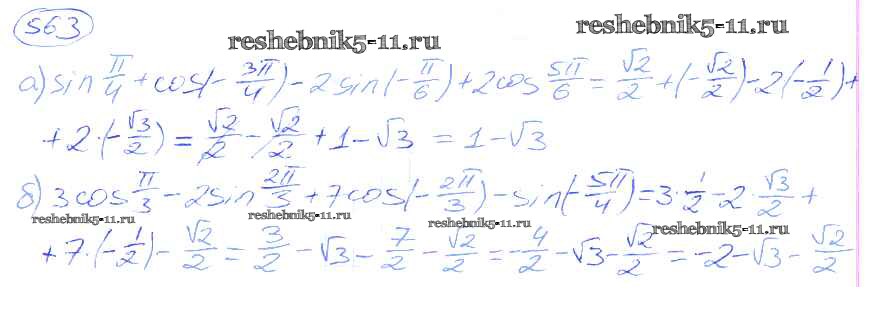 563
reshebnik5-11.ru
reshebnik5-11.ru
а) sin π/4 + cos(-3π/4) - 2 sin(-π/6) + 2 cos 5π/6 = √2/2 + (-√2/2) - 2(-1/2) +
+ 2·(-√3/2) = √2/2 - √2/2 + 1 - √3 = 1 - √3
б) 3 cos π/3 - 2 sin 2π/3 + 7 cos(-2π/3) - sin(-5π/4) = 3·1/2 - 2·√3/2 +
reshebnik5-11.ru
reshebnik5-11.ru
reshebnik5-11.ru
reshebnik5-11.ru
+ 7·(-1/2) - √2/2 = 3/2 - √3 - 7/2 - √2/2 = -4/2 - √3 - √2/2 = -2 - √3 - √2/2